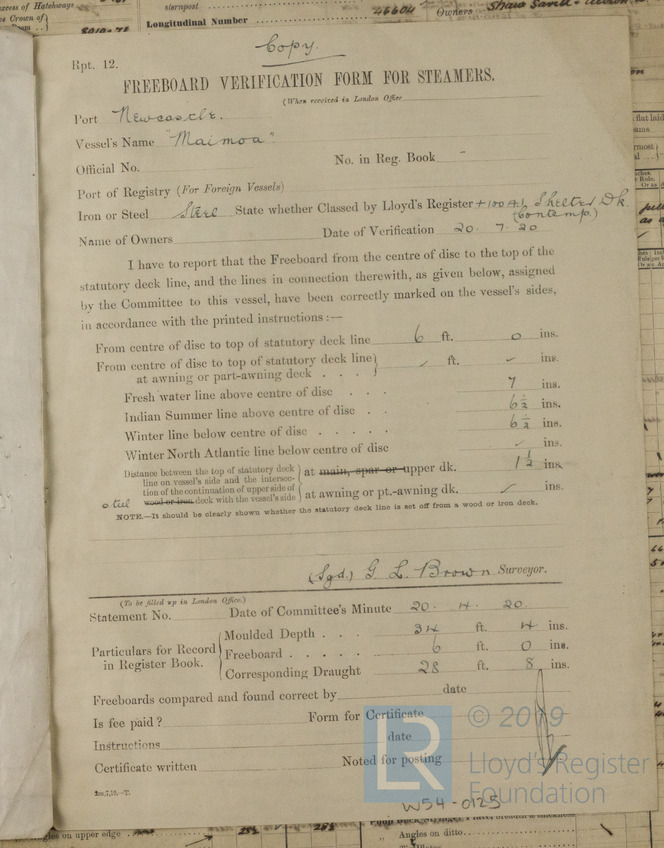 cess of Hatchways
sternpost
Longitudinal Number
46604
Owners Shaw Savill
Copy.
Rpt. 12.
FREEBOARD VERIFICATION FORM FOR STEAMERS.
(When received in London Office
Port Newcastle.
Vessel's Name "Maimoa".
Official No. No. in Reg. Book -
Port of Registry (For Foreign Vessels)
Iron or Steel Steel State whether Classed by Lloyd's Register +100A1 Shelter Dk.
(contemp.)
Name of Owners Date of Verification 20. 7. 20
I have to report that the Freeboard from the centre of disc to the top of the
statutory deck line, and the lines in connection therewith, as given below, assigned
by the Committee to this vessel, have been correctly marked on the vessel's sides,
in accordance with the printed instructions :—
From centre of disc to top of statutory deck line 6 ft. 0 ins.
From centre of disc to top of statutory deck line} ✓ ft. ✓ ins.
at awning or part-awning deck . . .
Fresh water line above centre of disc . . . 7 ins.
Indian Summer line above centre of disc . . 6½ ins.
Winter line below centre of disc . . . . . 6½ ins.
Winter North Atlantic line below centre of disc ✓ ins.
Distance between the top of statutory deck
line on vessel's side and the intersec-
tion of the continuation of upper side of
steel wood or iron deck with the vessel's side
at main, spar or upper dk. 1½ ins.
at awning or pt.-awning dk. ✓ ins.
NOTE.—It should be clearly shown whether the statutory deck line is set off from a wood or iron deck.
(Sgd.) G L Brown Surveyor.
(To be filled up in London Office.)
Statement No. Date of Committee's Minute 20. 4. 20.
Particulars for Record
in Register Book.
Moulded Depth . . . 34 ft. 4 ins.
Freeboard . . . . . 6 ft. 0 ins.
Corresponding Draught 28 ft. 8 ins.
Freeboards compared and found correct by date
Is fee paid ? Form for Certificate
Instructions date
Certificate written Noted for posting
2m,7,19.—T.
LR
© 2019
Lloyd's Register
Foundation
W54-0125
gles on upper edge
Angles on ditto